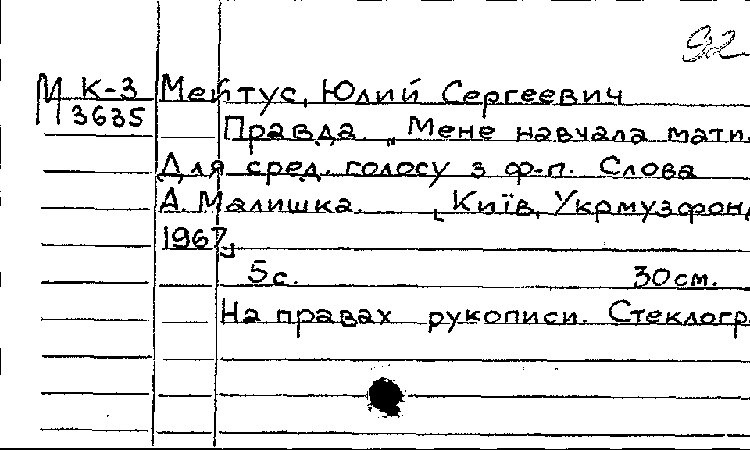 92
М К-3 Мейтус, Юлий Сергеевич
3635
Правда. „Мене навчала мати.
Для сред. голосу з ф-п. Слова
А. Малишка. [Київ, Укрмузфонд
1967]
5с. 30см.
На правах рукописи. Стеклогр